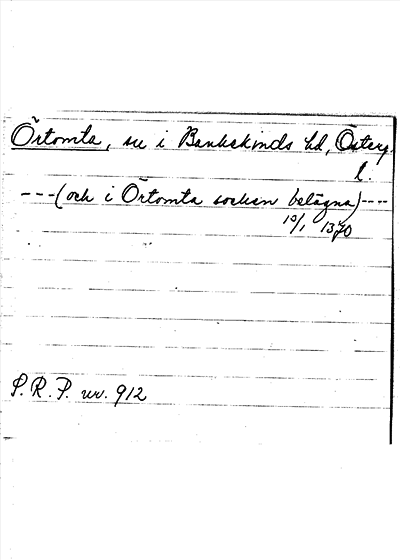 Örtomta, sn i Bankekinds hd, Österg.
l.
---(och i Örtomta socken belägna)----
10/1 1370
S. R. P. nr. 912